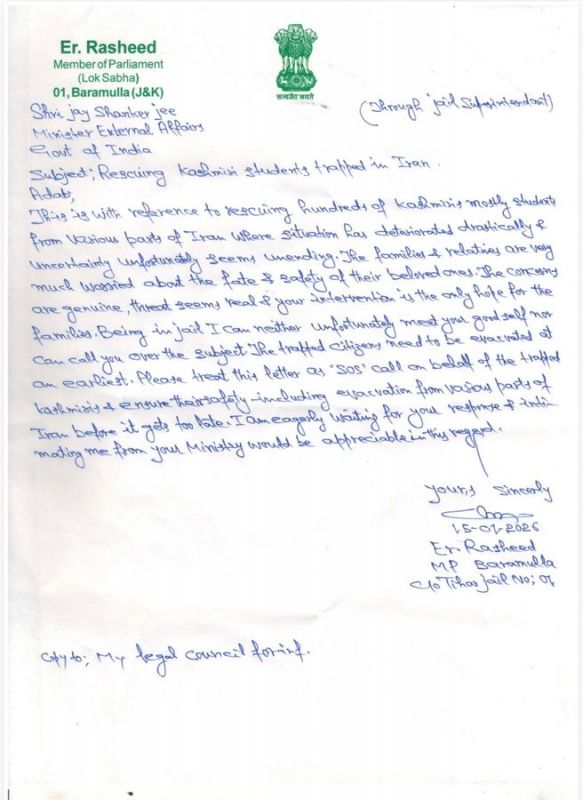 Er. Rasheed
Member of Parliament
(Lok Sabha)
01, Baramulla (J&K)
सत्यमेव जयते
(Through jail Superintendant)
Shri jay Shanker jee
Minister External Affairs
Govt of India
Subject; Rescuing Kashmiri students trapped in Iran.
Adab,
This is with reference to rescuing hundreds of Kashmiris mostly students
from various parts of Iran where situation has deteriorated drastically &
uncertainty unfortunately seems unending. The families & relatives are very
much worried about the fate & safety of their beloved ones. The concerns
are genuine, threat seems real & your intervention is the only hope for the
families. Being in jail I can neither unfortunately meet your good self nor
can call you over the subject. The trapped citizens need to be evacuated at
an earliest. Please treat this letter as 'SOS' call on behalf of the trapped
Kashmiris & ensure their safety including evacuation from various parts of
Iran before it gets too late. I am eagerly waiting for your response & inti-
mating me from your Ministry would be appreciable in this regard.
yours sincerly
15-01-2026
Er. Rasheed
MP Baramulla
C/o Tihar jail No;
Copy to; My legal council for inf.